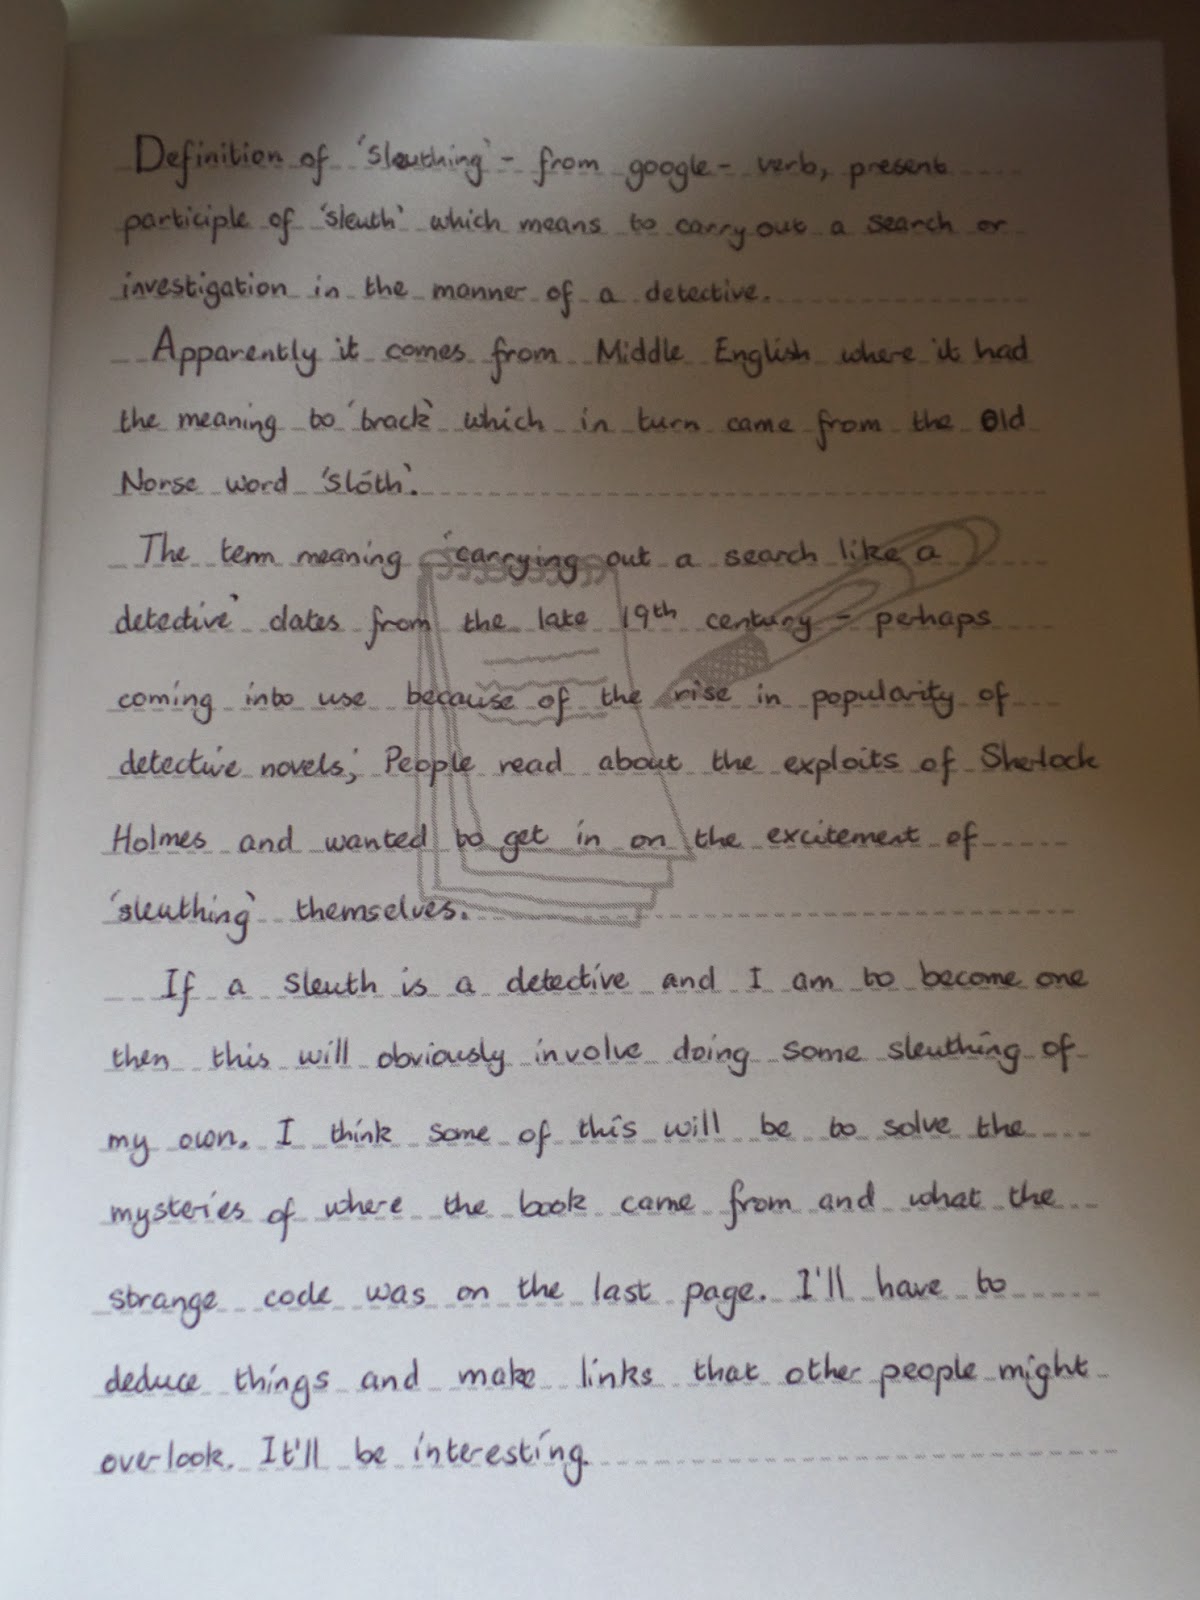 Definition of 'sleuthing' - from google - verb, present
participle of 'sleuth' which means to carry out a search or
investigation in the manner of a detective.
Apparently it comes from Middle English where it had
the meaning to 'track' which in turn came from the Old
Norse word 'slóth'.
The term meaning 'carrying out a search like a
detective' dates from the late 19th century - perhaps
coming into use because of the rise in popularity of
detective novels; People read about the exploits of Sherlock
Holmes and wanted to get in on the excitement of
'sleuthing' themselves.
If a sleuth is a detective and I am to become one
then this will obviously involve doing some sleuthing of
my own. I think some of this will be to solve the
mysteries of where the book came from and what the
strange code was on the last page. I'll have to
deduce things and make links that other people might
overlook. It'll be interesting.